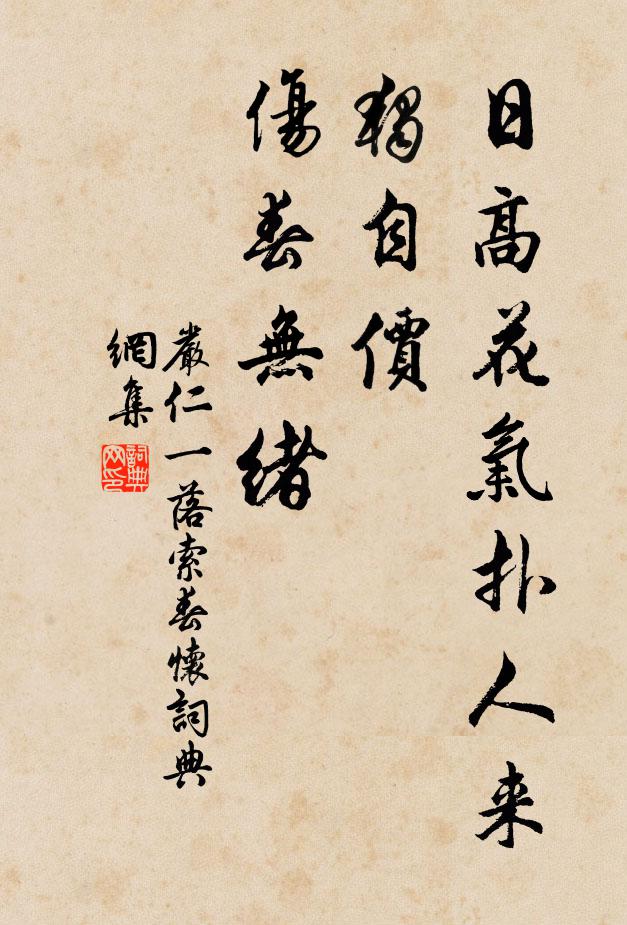 日高花氣扑人来
獨自價
傷春無緒
嚴仁一落索春懷詞典
網集
詞典網印